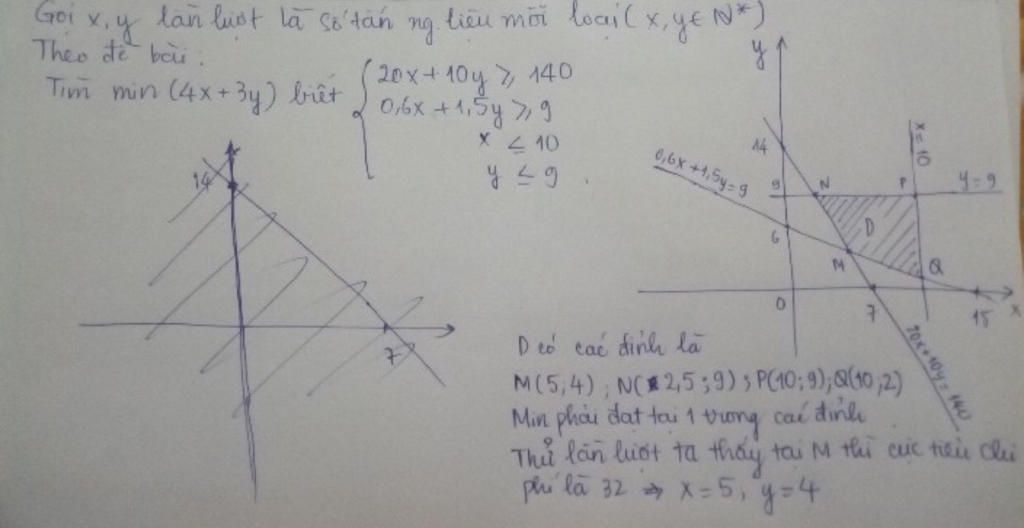 Gọi x, y lần lượt là số tấn ng. liệu mỗi loại (x, y ∈ N*)
Theo đề bài :
Tìm min (4x + 3y) biết
20x + 10y ≥ 140
0,6x + 1,5y ≥ 9
x ≤ 10
y ≤ 9 .
14
7
y
14
9
6
0
7
15
x
0,6x + 1,5y = 9
x = 10
y = 9
N
P
D
M
Q
20x + 10y = 140
D có các đỉnh là
M(5,4) ; N(2,5;9) ; P(10;9) ; Q(10;2)
Min phải đạt tại 1 trong các đỉnh
Thử lần lượt ta thấy tại M thì cực tiểu chi
phí là 32 ⇒ x = 5, y = 4